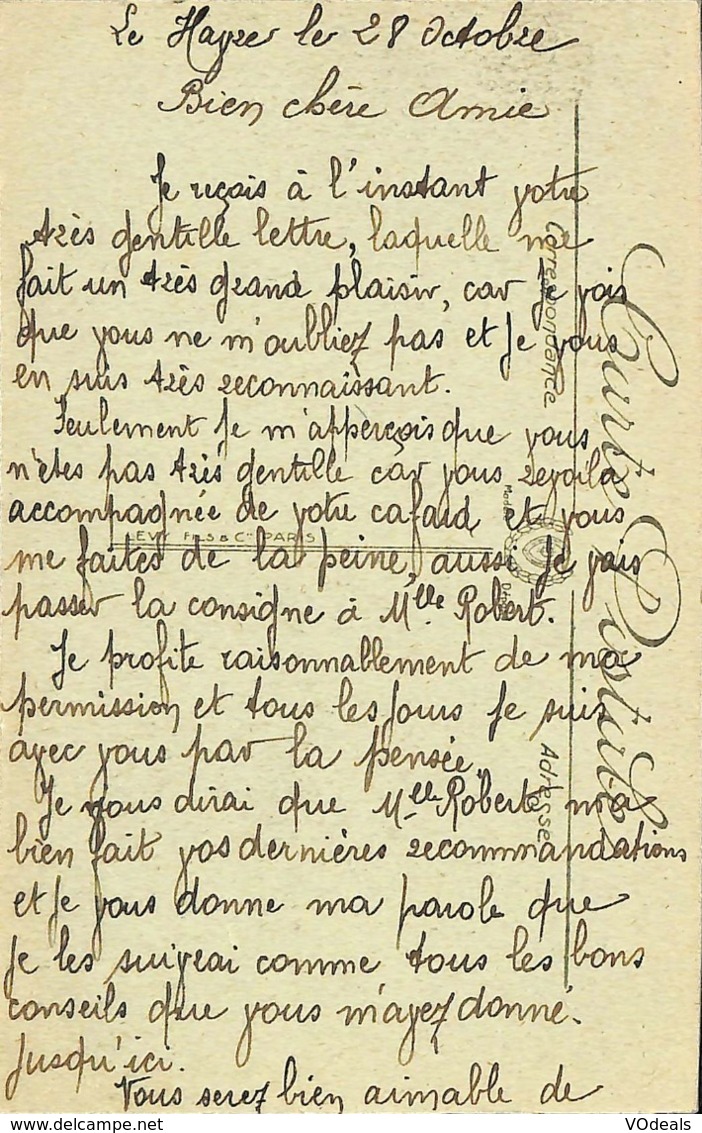 Le Havre le 28 Octobre
Bien chère Amie
Je reçois à l'instant votre
très gentille lettre, laquelle me
fait un très grand plaisir, car je vois
que vous ne m'oubliez pas et Je vous
en suis très reconnaissant.
Seulement Je m'apperçois que vous
n'êtes pas très gentille car vous revoilà
accompagnée de votre cafard et vous
me faites de la peine, aussi Je vais
passer la consigne à Mlle Robert.
Je profite raisonnablement de ma
permission et tous les jours Je suis
avec vous par la pensée.
Je vous dirai que Mlle Robert m'a
bien fait vos dernières recommandations
et Je vous donne ma parole que
Je les suivrai comme tous les bons
conseils que vous m'avez donné.
Jusqu'ici.
Vous serez bien aimable de
Carte Postale
Correspondance
Adresse
LEVY FILS & Cie PARIS
VOdeals